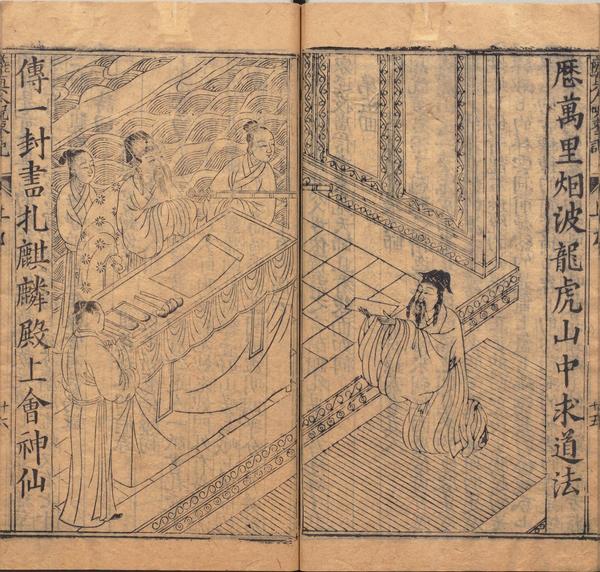 暦萬里烟波龍虎山中求道法
廿五
傳一封書扎麒麟殿上會神仙
廿六